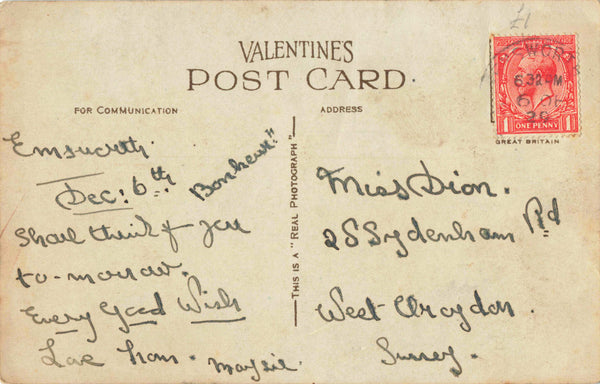 £1
VALENTINES
POST CARD
FOR COMMUNICATION
ADDRESS
ONE PENNY
GREAT BRITAIN
Emsworth.
Dec: 6th
"Bonheur."
Shall think of you
to-morrow.
Every Good Wish
Love from. Maysie.
THIS IS A "REAL PHOTOGRAPH"
Miss Dion.
Sydenham Rd
West Croydon.
Surrey.